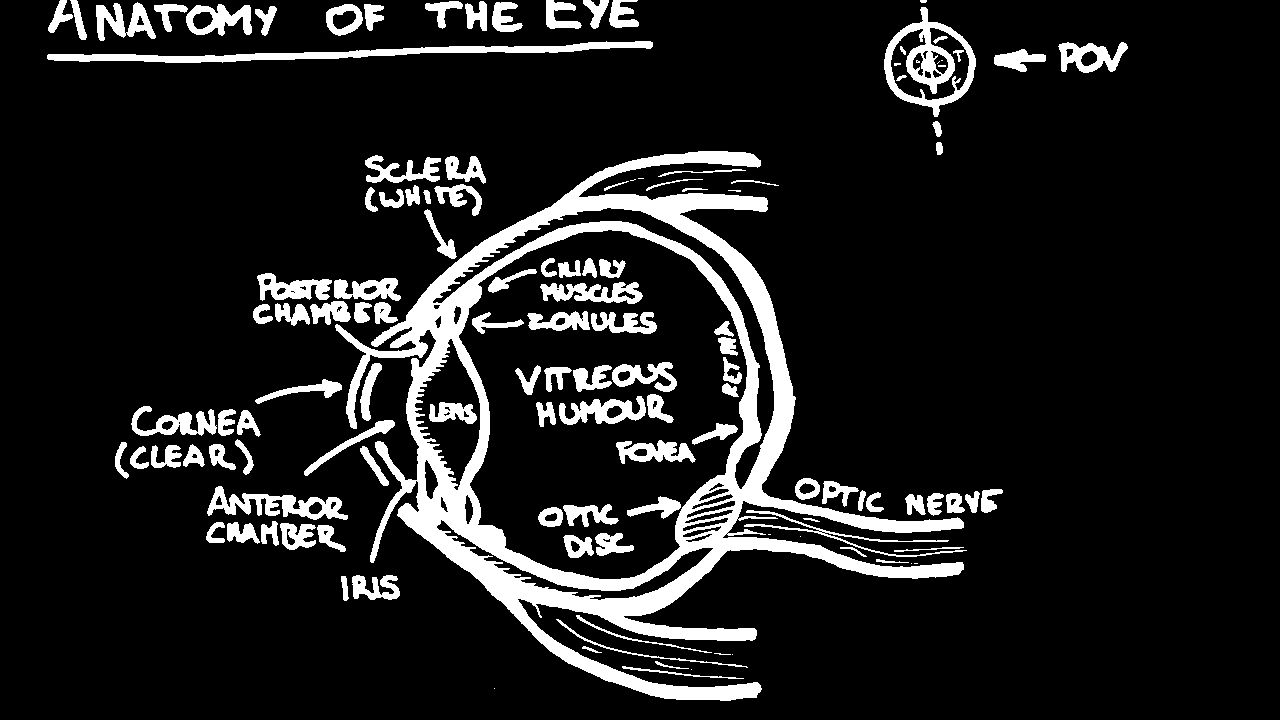 ANATOMY OF THE EYE
POV
SCLERA
(WHITE)
CILIARY
MUSCLES
POSTERIOR
CHAMBER
ZONULES
RETINA
VITREOUS
HUMOUR
LENS
CORNEA
(CLEAR)
FOVEA
ANTERIOR
CHAMBER
OPTIC NERVE
OPTIC
DISC
IRIS